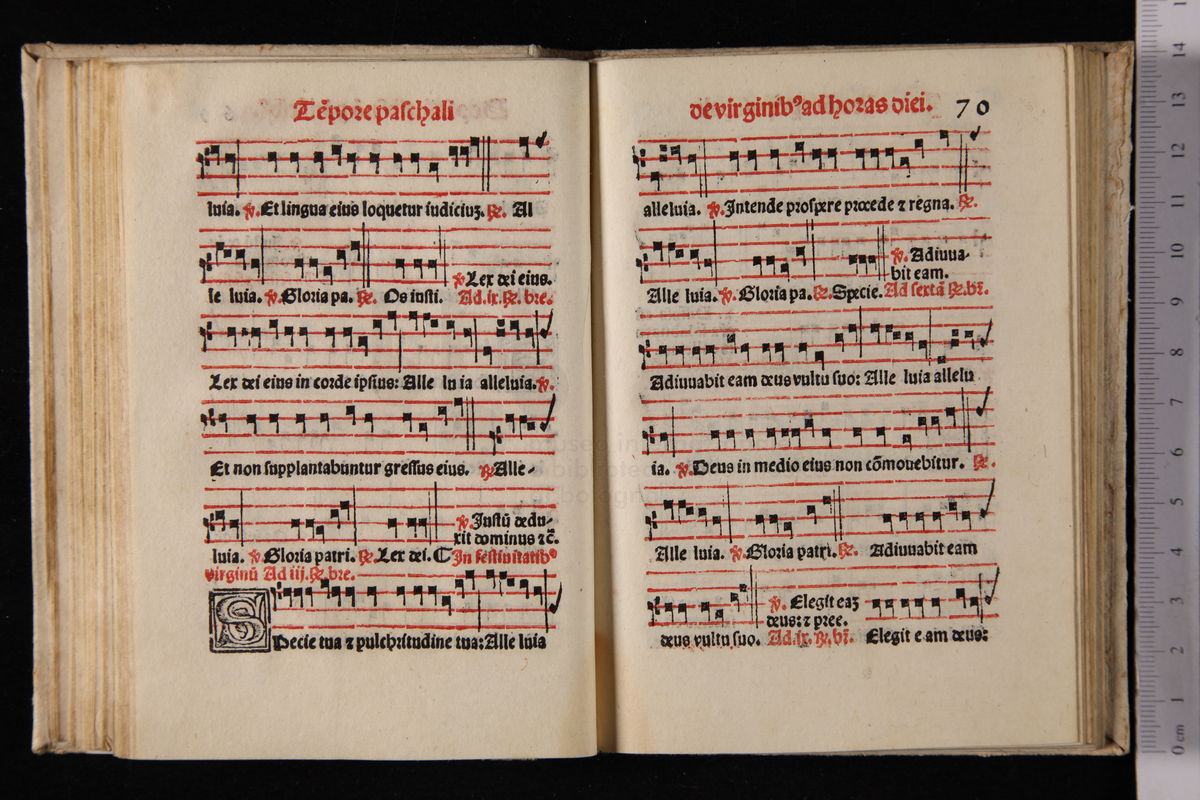 Tēpore paschali
luia. ℣. Et lingua eius loquetur iudiciuʒ. ℟. Al
℣. Lex dei eius.
le luia. ℣. Gloria pa. ℟. Os iusti. Ad .ix. ℟. bre.
Lex dei eius in corde ipsius: Alle lu ia alleluia. ℣.
Et non supplantabuntur gressus eius. ℟. Alle-
℣. Justū dedu-
xit dominus ⁊ c̄.
luia. ℣. Gloria patri. ℟. Lex dei. ℂ In festiuitatibꝰ
virginū Ad iij. ℟. bre.
Specie tua ⁊ pulchritudine tua: Alle luia
de virginibꝰ ad horas diei. 70
alleluia. ℣. Intende prospere procede ⁊ regna. ℟.
℣. Adiuua-
bit eam.
Alle luia. ℣. Gloria pa. ℟. Specie. Ad sextā ℟. br̄.
Adiuuabit eam deus vultu suo: Alle luia allelu
ia. ℣. Deus in medio eius non cōmouebitur. ℟.
Alle luia. ℣. Gloria patri. ℟. Adiuuabit eam
℣. Elegit eaʒ
deus: ⁊ pree.
deus vultu suo. Ad .ix. ℟. br̄. Elegit e am deus:
0 cm 1 2 3 4 5 6 7 8 9 10 11 12 13 14